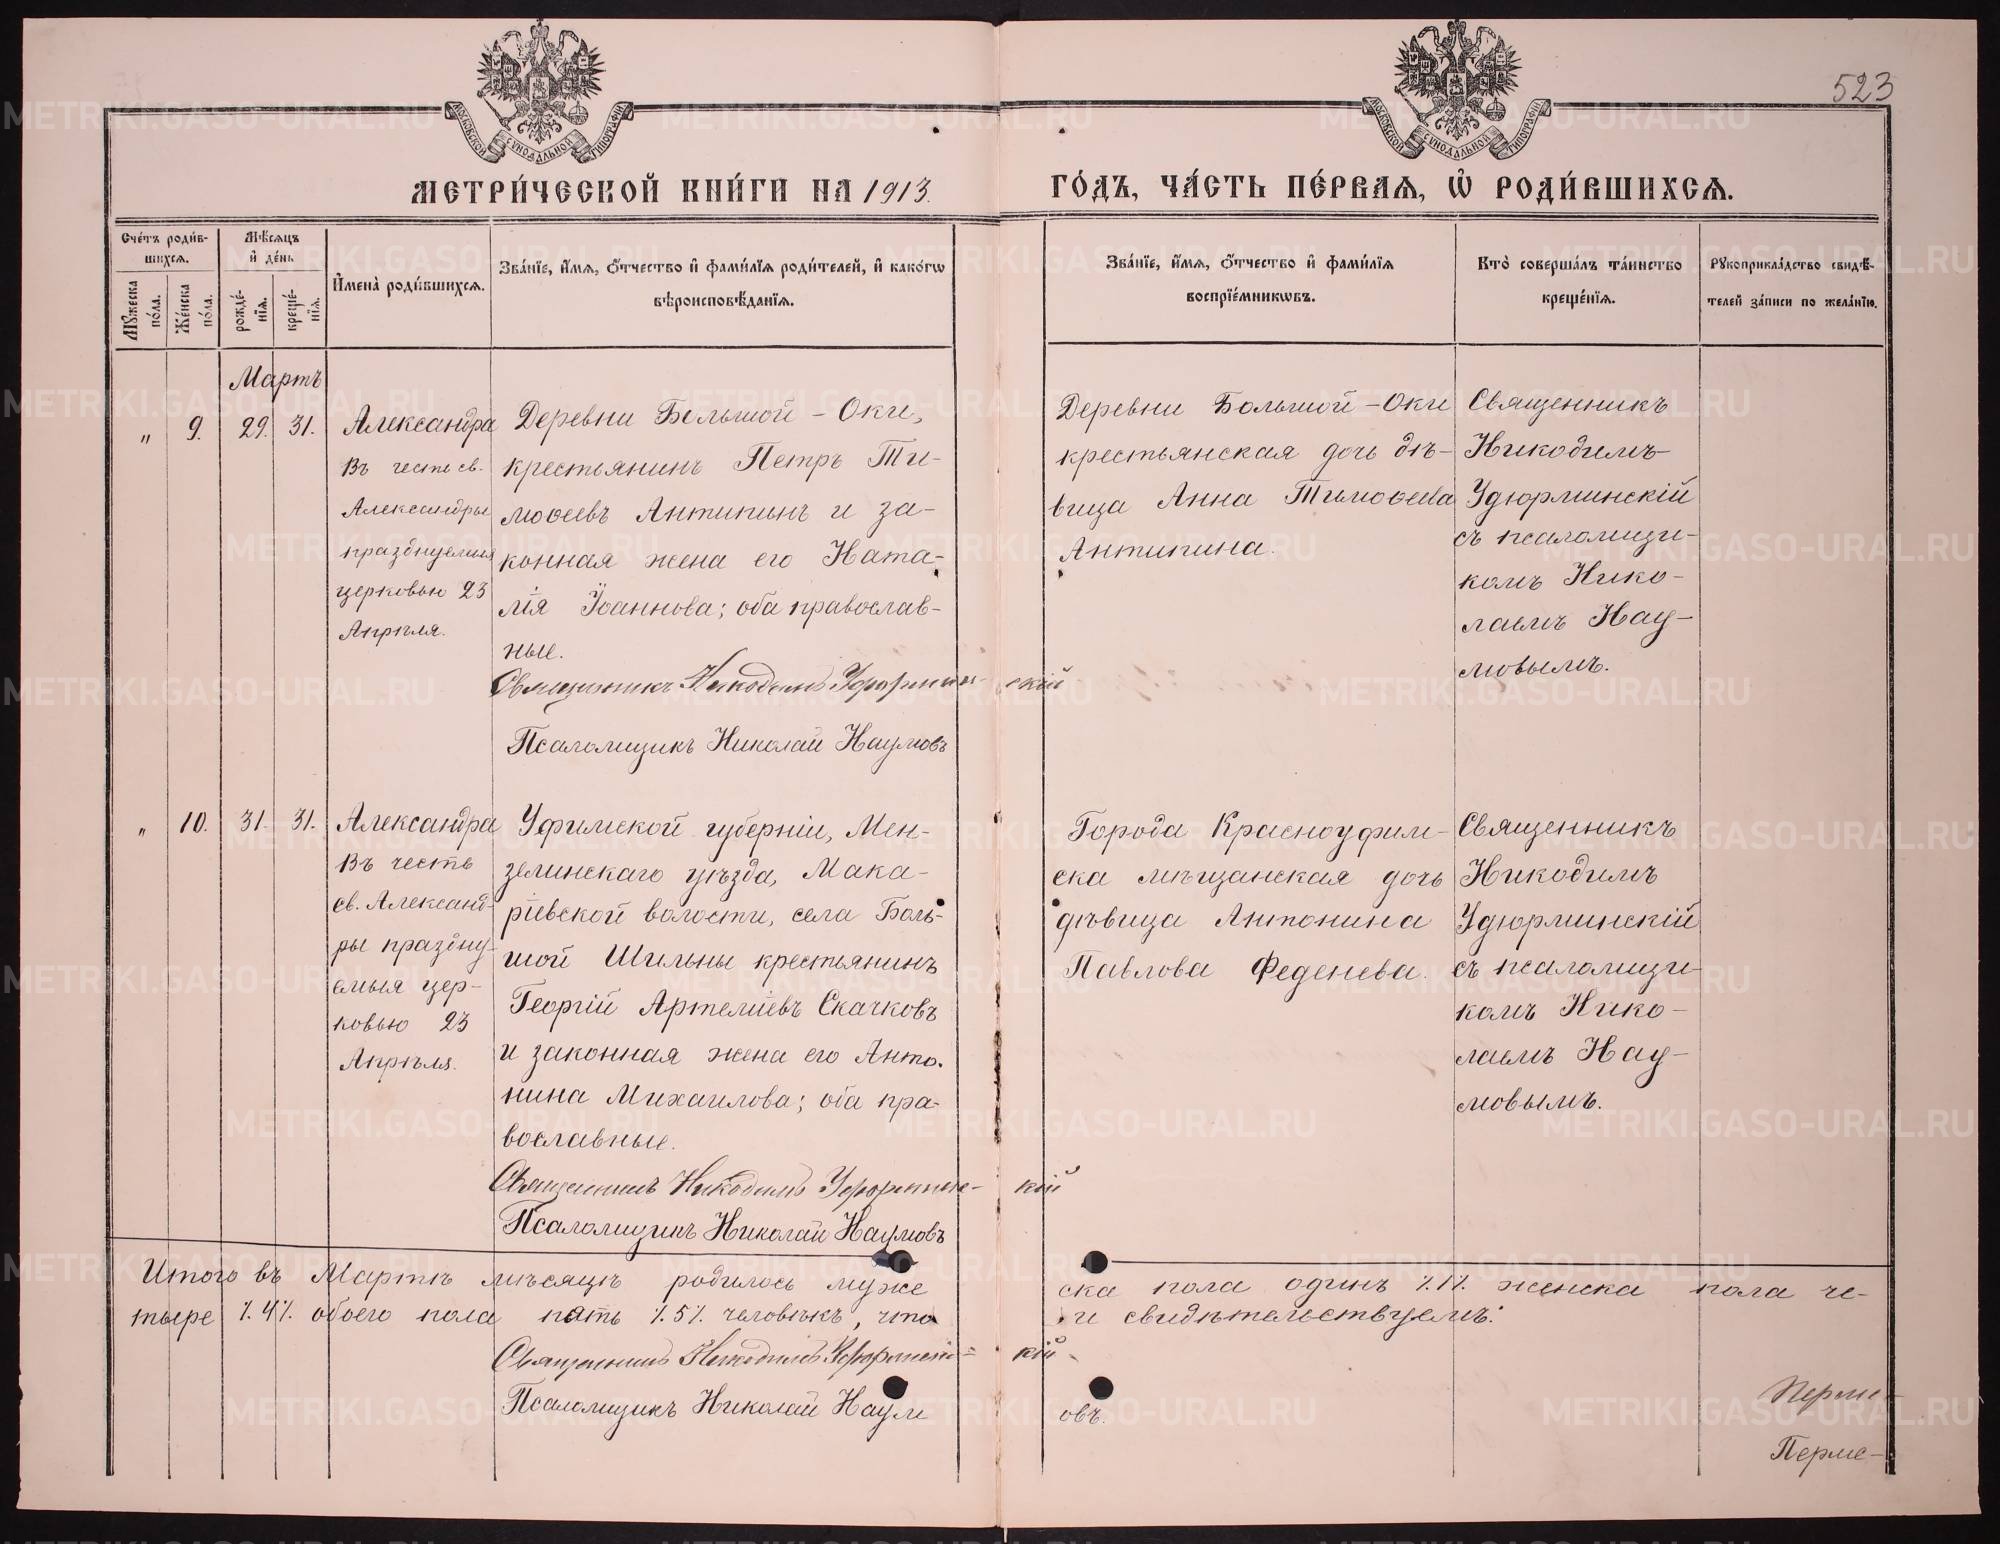 523
МОСКОВСКОЙ СѴНОДАЛЬНОЙ ТИПОГРАФІИ
МОСКОВСКОЙ СѴНОДАЛЬНОЙ ТИПОГРАФІИ
МЕТРИ́ЧЕСКОЙ КНИ́ГИ НА 1913.
ГО́ДЪ, ЧА́СТЬ ПЕ́РВАѦ, Ѡ҆ РОДИ́ВШИХСѦ.
Сче́тъ роди́в-
шихсѧ.
Мꙋжеска по́ла.
Же́нска по́ла.
Мѣ́сѧцъ
и҆ де́нь
рожде́-
нїѧ.
креще́-
нїѧ.
И҆мена̀ роди́вшихсѧ.
Зва́нїе, и҆́мѧ, ѻ҆́тчество и҆ фами́лїѧ роди́телей, и҆ како́гѡ
вѣроисповѣ́данїѧ.
Зва́нїе, и҆́мѧ, ѻ҆́тчество и҆ фами́лїѧ
воспрїе́мникѡвъ.
Кто̀ соверша́лъ та́инство
креще́нїѧ.
Рꙋкоприкла́дство свидѣ́-
телей за́писи по жела́нїю.
Мартъ
" 9. 29. 31.
Александра
Въ честь св.
Александры
празднуемыя
церковью 23
Апрѣля.
Деревни Большой - Оки,
крестьянинъ Петръ Ти-
моѳеевъ Антипинъ и за-
конная жена его Ната-
лія Іоаннова; оба православ-
ные.
Священникъ Никодимъ Удюрмин- скій
Псаломщикъ Николай Наумовъ
Деревни Большой - Оки
крестьянская дочь дѣ-
вица Анна Тимоѳеева
Антипина.
Священникъ
Никодимъ
Удюрминскій
съ псаломщи-
комъ Нико-
лаемъ Нау-
мовымъ.
" 10. 31. 31.
Александра
Въ честь
св. Александ-
ры праздну-
емыя цер-
ковью 23
Апрѣля.
Уфимской губерніи, Мен-
зелинскаго уѣзда, Мака-
ріевской волости, села Боль-
шой Шильны крестьянинъ
Георгій Артеміевъ Скачковъ
и законная жена его Анто-
нина Михаилова; оба пра-
вославные.
Священникъ Никодимъ Удюрминс- кій
Псаломщикъ Николай Наумовъ
Города Красноуфим-
ска мѣщанская дочь
дѣвица Антонина
Павлова Феденева.
Священникъ
Никодимъ
Удюрминскій
съ псаломщи-
комъ Нико-
лаемъ Нау-
мовымъ.
Итого въ Мартѣ мѣсяцѣ родилось муже ска пола одинъ %.1% женска пола че-
тыре %.4% обоего пола пять %.5% человѣкъ, что и свидѣтельствуемъ:
Священникъ Никодимъ Удюрминс= кій
Псаломщикъ Николай Наум овъ.
Перме-
Перме-
METRIKI.GASO-URAL.RU